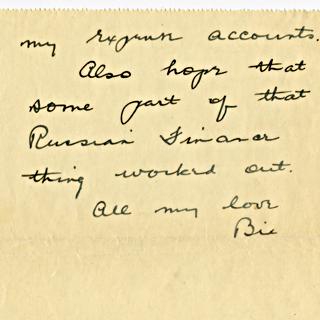 my expense accounts.
Also hope that
some part of that
Russian Finance
thing worked out.
All my love
Bic